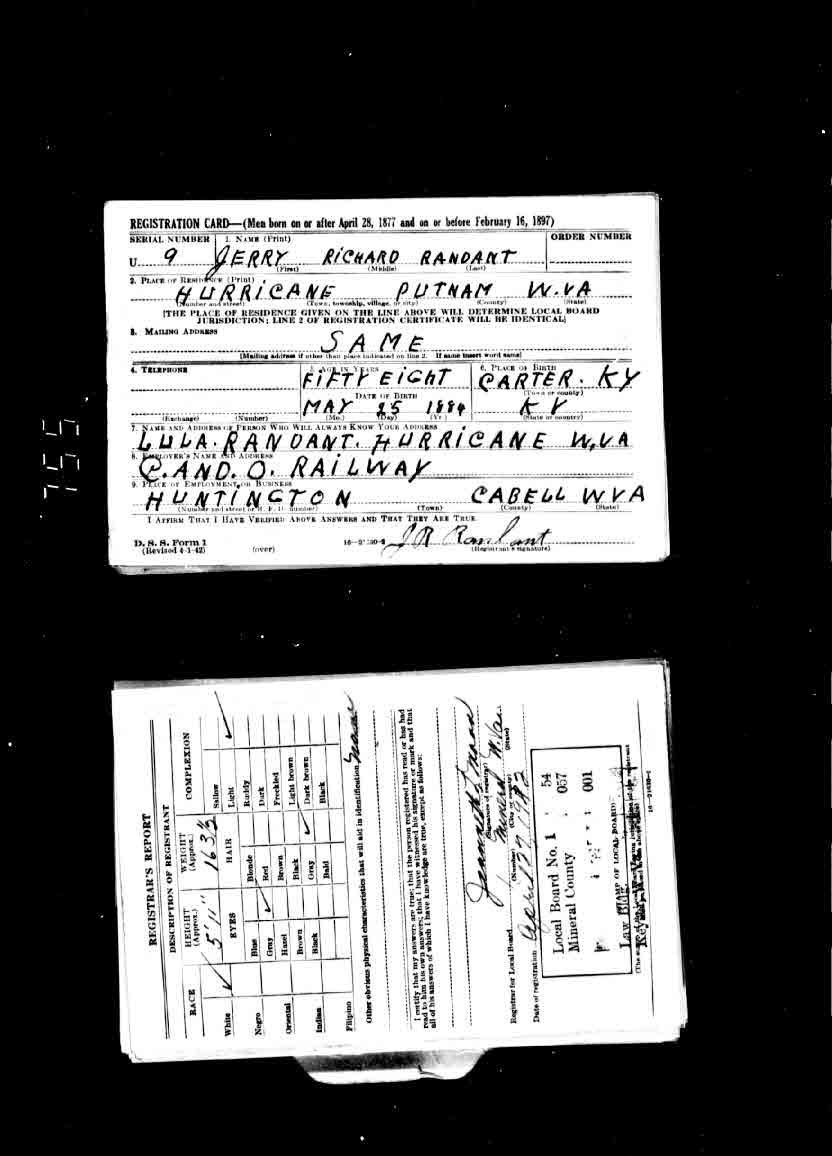 REGISTRATION CARD—(Men born on or after April 28, 1877 and on or before February 16, 1897)
SERIAL NUMBER 1. NAME (Print) ORDER NUMBER
U 9 JERRY RICHARD RANDANT
(First) (Middle) (Last)
2. PLACE OF RESIDENCE (Print)
HURRICANE PUTNAM W.VA
(Number and street) (Town, township, village, or city) (County) (State)
[THE PLACE OF RESIDENCE GIVEN ON THE LINE ABOVE WILL DETERMINE LOCAL BOARD
JURISDICTION; LINE 2 OF REGISTRATION CERTIFICATE WILL BE IDENTICAL]
3. MAILING ADDRESS
SAME
[Mailing address if other than place indicated on line 2. If same insert word same]
4. TELEPHONE 5. AGE IN YEARS 6. PLACE OF BIRTH
FIFTY EIGHT CARTER. KY
DATE OF BIRTH (Town or county)
MAY 25 1884 KY
(Exchange) (Number) (Mo.) (Day) (Yr.) (State or country)
7. NAME AND ADDRESS OF PERSON WHO WILL ALWAYS KNOW YOUR ADDRESS
LULA. RANDANT. HURRICANE W.VA
8. EMPLOYER'S NAME AND ADDRESS
C. AND. O. RAILWAY
9. PLACE OF EMPLOYMENT OR BUSINESS
HUNTINGTON CABELL WVA
(Number and street or R. F. D. number) (Town) (County) (State)
I AFFIRM THAT I HAVE VERIFIED ABOVE ANSWERS AND THAT THEY ARE TRUE.
D. S. S. Form 1
(Revised 4-1-42) (over) J R Randant
(Registrant's signature)
755
REGISTRAR'S REPORT
DESCRIPTION OF REGISTRANT
RACE HEIGHT (Approx.) WEIGHT (Approx.) COMPLEXION
5' 11" 163
EYES HAIR
White Blue Blonde Sallow
Light
Negro Gray Red Ruddy
Dark
Oriental Hazel Brown Freckled
Brown Black Light brown
Indian Black Gray Dark brown
Bald Black
Filipino
Other obvious physical characteristics that will aid in identification
I certify that my answers are true; that the person registered has read or has had
read to him his own answers; that I have witnessed his signature or mark and that
all of his answers of which I have knowledge are true, except as follows:
(Signature of registrar)
Registrar for Local Board 1 Mineral W.Va.
(Number) (City or county) (State)
Date of registration April 27, 1942
Local Board No. 1 54
Mineral County 057
001
Law Bldg.
(STAMP OF LOCAL BOARD)